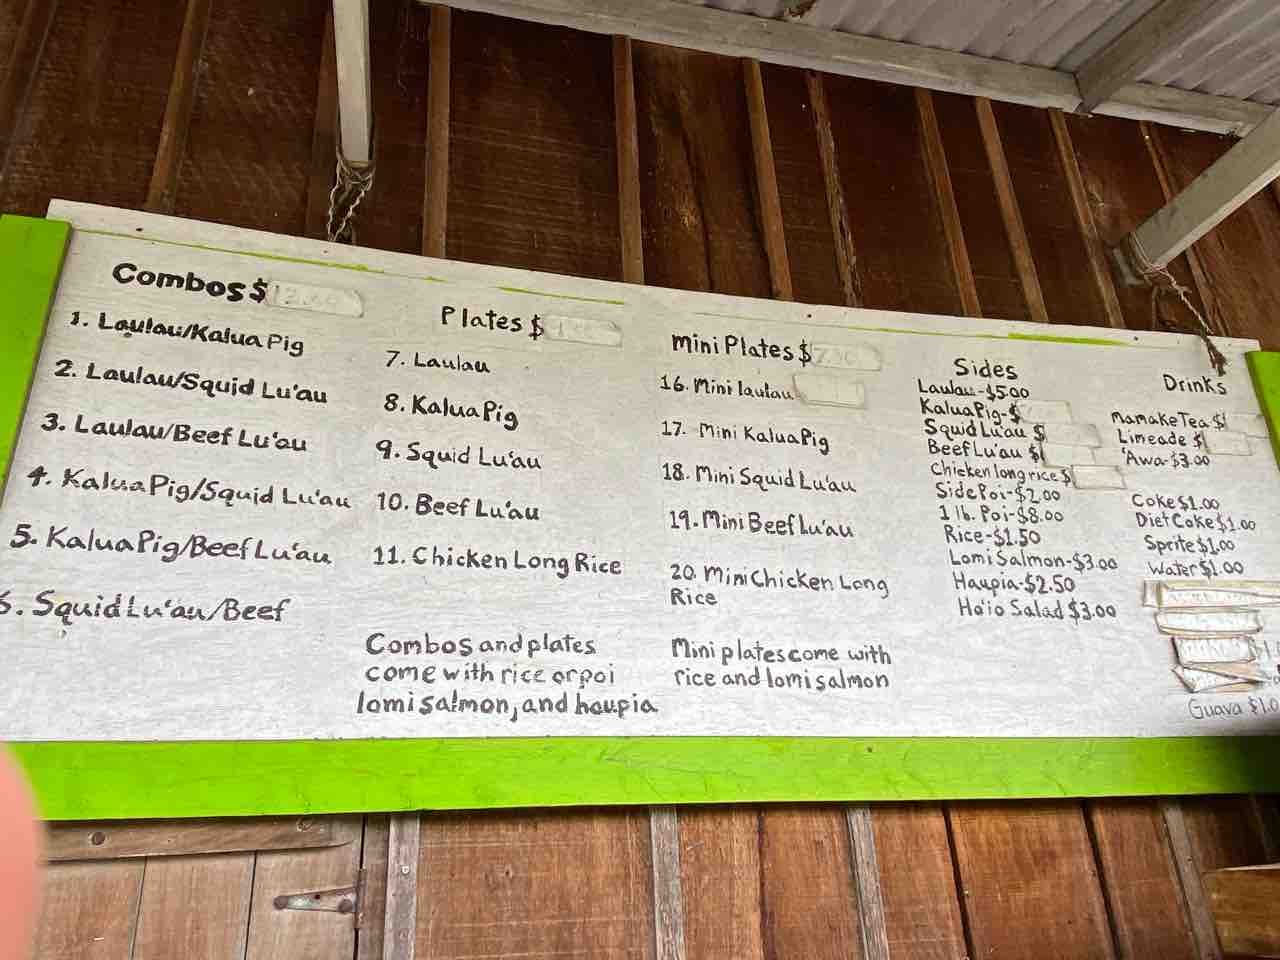 Combos $
1. Laulau/Kalua Pig
2. Laulau/Squid Lu'au
3. Laulau/Beef Lu'au
4. Kalua Pig/Squid Lu'au
5. Kalua Pig/Beef Lu'au
6. Squid Lu'au/Beef
Plates $
7. Laulau
8. Kalua Pig
9. Squid Lu'au
10. Beef Lu'au
11. Chicken Long Rice
Combos and plates
come with rice or poi
lomi salmon, and haupia
Mini Plates $
16. Mini laulau
17. Mini Kalua Pig
18. Mini Squid Lu'au
19. Mini Beef Lu'au
20. Mini Chicken Long
Rice
Mini plates come with
rice and lomi salmon
Sides
Laulau-$5.00
Kalua Pig-$
Squid Lu'au $
Beef Lu'au $
Chicken long rice $
Side Poi-$2.00
1 lb. Poi-$8.00
Rice-$1.50
Lomi Salmon-$3.00
Haupia-$2.50
Ho'io Salad $3.00
Drinks
Mamake Tea $
Limeade $
'Awa-$3.00
Coke $1.00
Diet Coke $1.00
Sprite $1.00
Water $1.00
Guava $1.0